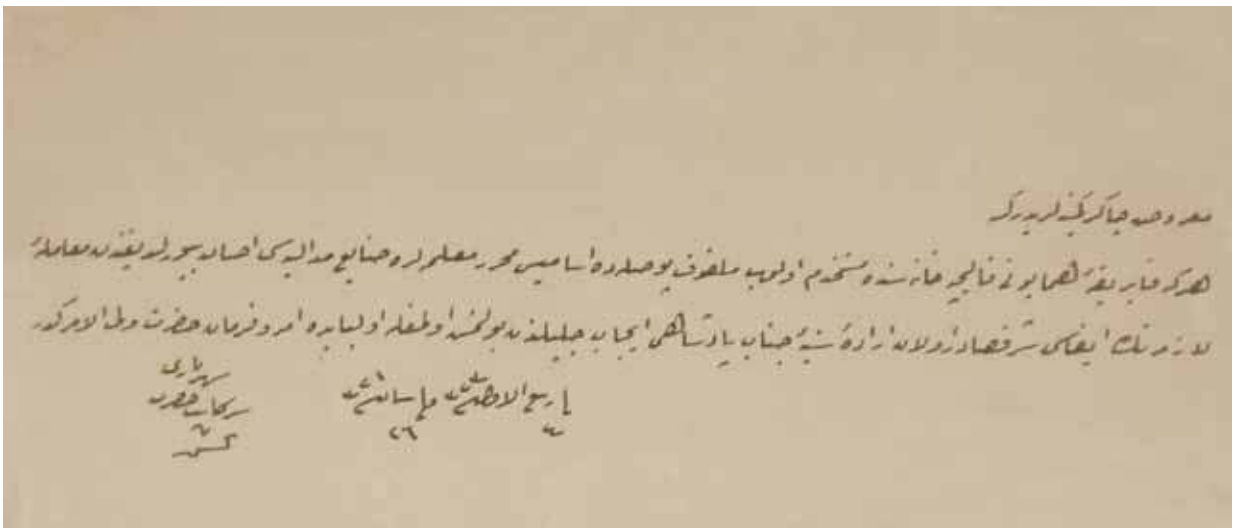 معروض چاكر كمينه لريدركه
هركه فابريقهٔ همايونى قاليچه خانه سنده مستخدم اولوب ملفوف پوصلهده اساميسى محرر معلملره صنايع مداليه سى احسان بيورلديغندن معاملهٔ
لازمه نك ايفاسى شرفصادر اولان ارادهٔ سنيهٔ جناب پادشاهى ايجاب جليلندن بولنمش اولمغله اولبابده امر و فرمان حضرت ولى الامركدر
ربيع الاخر سنه نيسان سنه
سركاتب حضرت
شهريارى